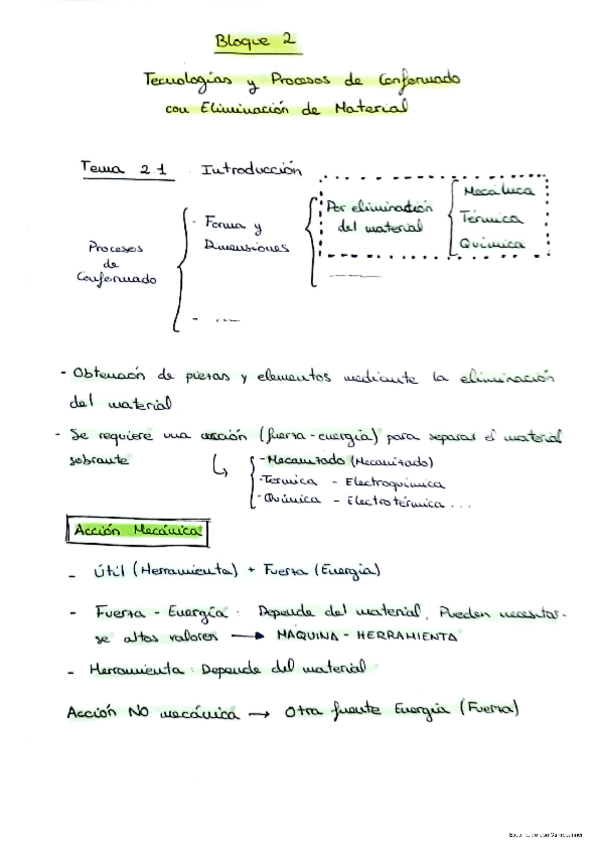 Bloque 2
Tecnologías y Procesos de Conformado
con Eliminación de Material
Tema 2.1 Introducción
Procesos
de
Conformado
- Forma y
Dimensiones
- ....
Por eliminación
del material
Mecánica
Térmica
Química
- Obtención de piezas y elementos mediante la eliminación
del material
- Se requiere una acción (fuerza - energía) para separar el material
sobrante
- Mecanizado (Mecanizado)
- Térmica - Electroquímica
- Química - Electrotérmica ...
Acción Mecánica
- Útil (Herramienta) + Fuerza (Energía)
- Fuerza - Energía : Depende del material. Pueden necesitar-
se altos valores → MAQUINA - HERRAMIENTA
- Herramienta : Depende del material
Acción NO mecánica → Otra fuente Energía (Fuerza)